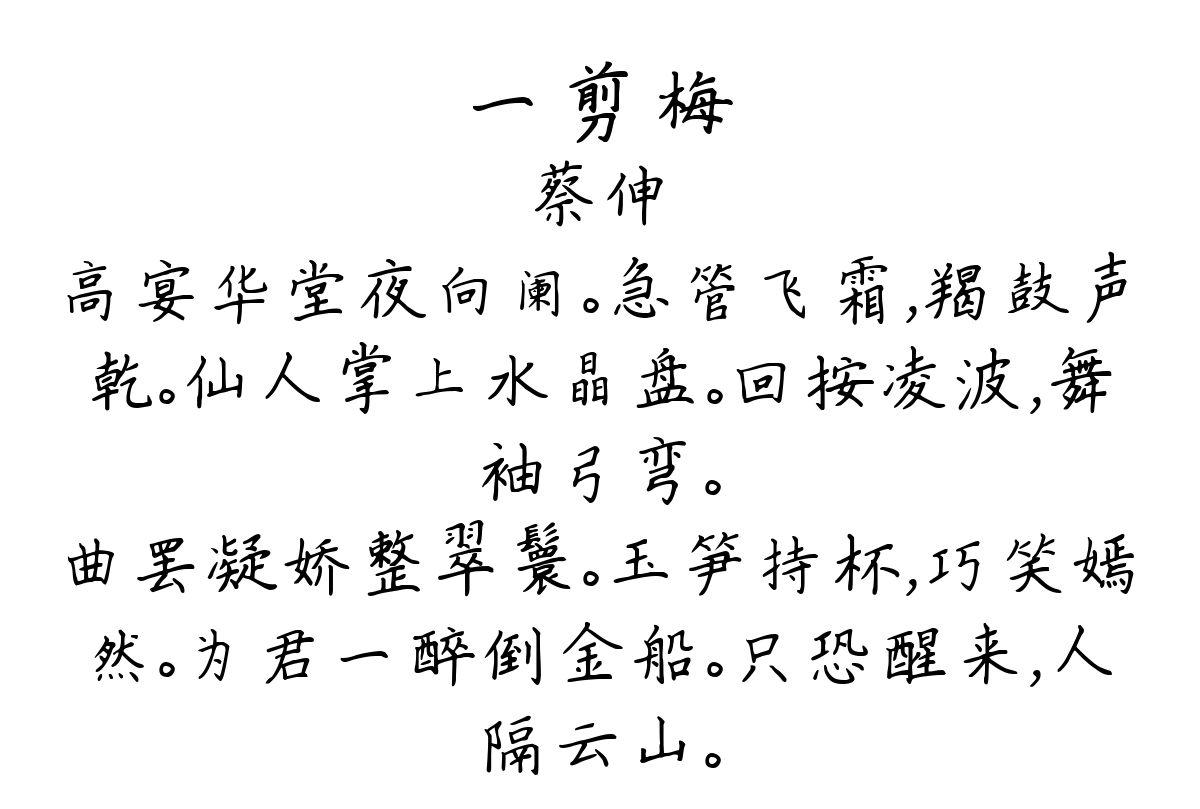 一剪梅
蔡伸
高宴华堂夜向阑。急管飞霜,羯鼓声
乾。仙人掌上水晶盘。回按凌波,舞
袖弓弯。
曲罢凝娇整翠鬟。玉笋持杯,巧笑嫣
然。为君一醉倒金船。只恐醒来,人
隔云山。